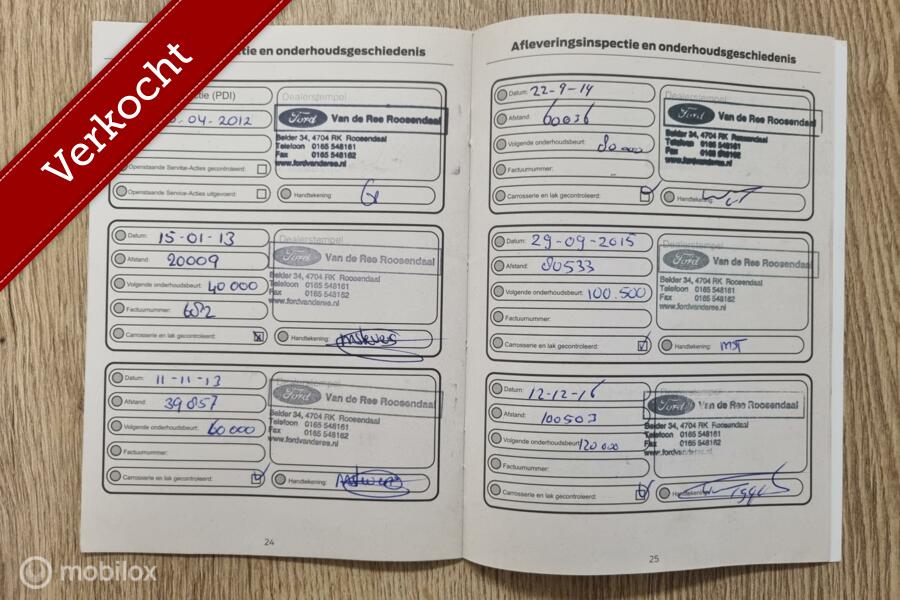 Verkocht
tie en onderhoudsgeschiedenis
ctie (PDI)
Dealerstempel
.04-2012
Ford Van de Ree Roosendaal
Belder 34, 4704 RK Roosendaal
Telefoon 0165 548161
Fax 0165 548162
www.fordvanderee.nl
Openstaande Service-Acties gecontroleerd:
Openstaande Service-Acties uitgevoerd:
Handtekening:
Datum: 15-01-13
Afstand: 20009
Volgende onderhoudsbeurt: 40 000
Factuurnummer: 682
Carrosserie en lak gecontroleerd:
Dealerstempel
Ford Van de Ree Roosendaal
Belder 34, 4704 RK Roosendaal
Telefoon 0165 548161
Fax 0165 548162
www.fordvanderee.nl
Handtekening:
Datum: 11-11-13
Afstand: 39857
Volgende onderhoudsbeurt: 60000
Factuurnummer:
Carrosserie en lak gecontroleerd:
Dealerstempel
Ford Van de Ree Roosendaal
Belder 34, 4704 RK Roosendaal
Telefoon 0165 548161
Fax 0165 548162
www.fordvanderee.nl
Handtekening:
24
Afleveringsinspectie en onderhoudsgeschiedenis
Datum: 22-9-14
Afstand: 60036
Volgende onderhoudsbeurt: 80 000
Factuurnummer:
Carrosserie en lak gecontroleerd:
Dealerstempel
Ford Van de Ree Roosendaal
Belder 34, 4704 RK Roosendaal
Telefoon 0165 548161
Fax 0165 548162
www.fordvanderee.nl
Handtekening:
Datum: 29-09-2015
Afstand: 80533
Volgende onderhoudsbeurt: 100.500
Factuurnummer:
Carrosserie en lak gecontroleerd:
Dealerstempel
Ford Van de Ree Roosendaal
Belder 34, 4704 RK Roosendaal
Telefoon 0165 548161
Fax 0165 548162
www.fordvanderee.nl
Handtekening: MST
Datum: 12-12-16
Afstand: 100503
Volgende onderhoudsbeurt: 120 000
Factuurnummer:
Carrosserie en lak gecontroleerd:
Ford Van de Ree Roosendaal
Belder 34, 4704 RK Roosendaal
Telefoon 0165 548161
Fax 0165 548162
www.fordvanderee.nl
Handtekening:
25
mobilox